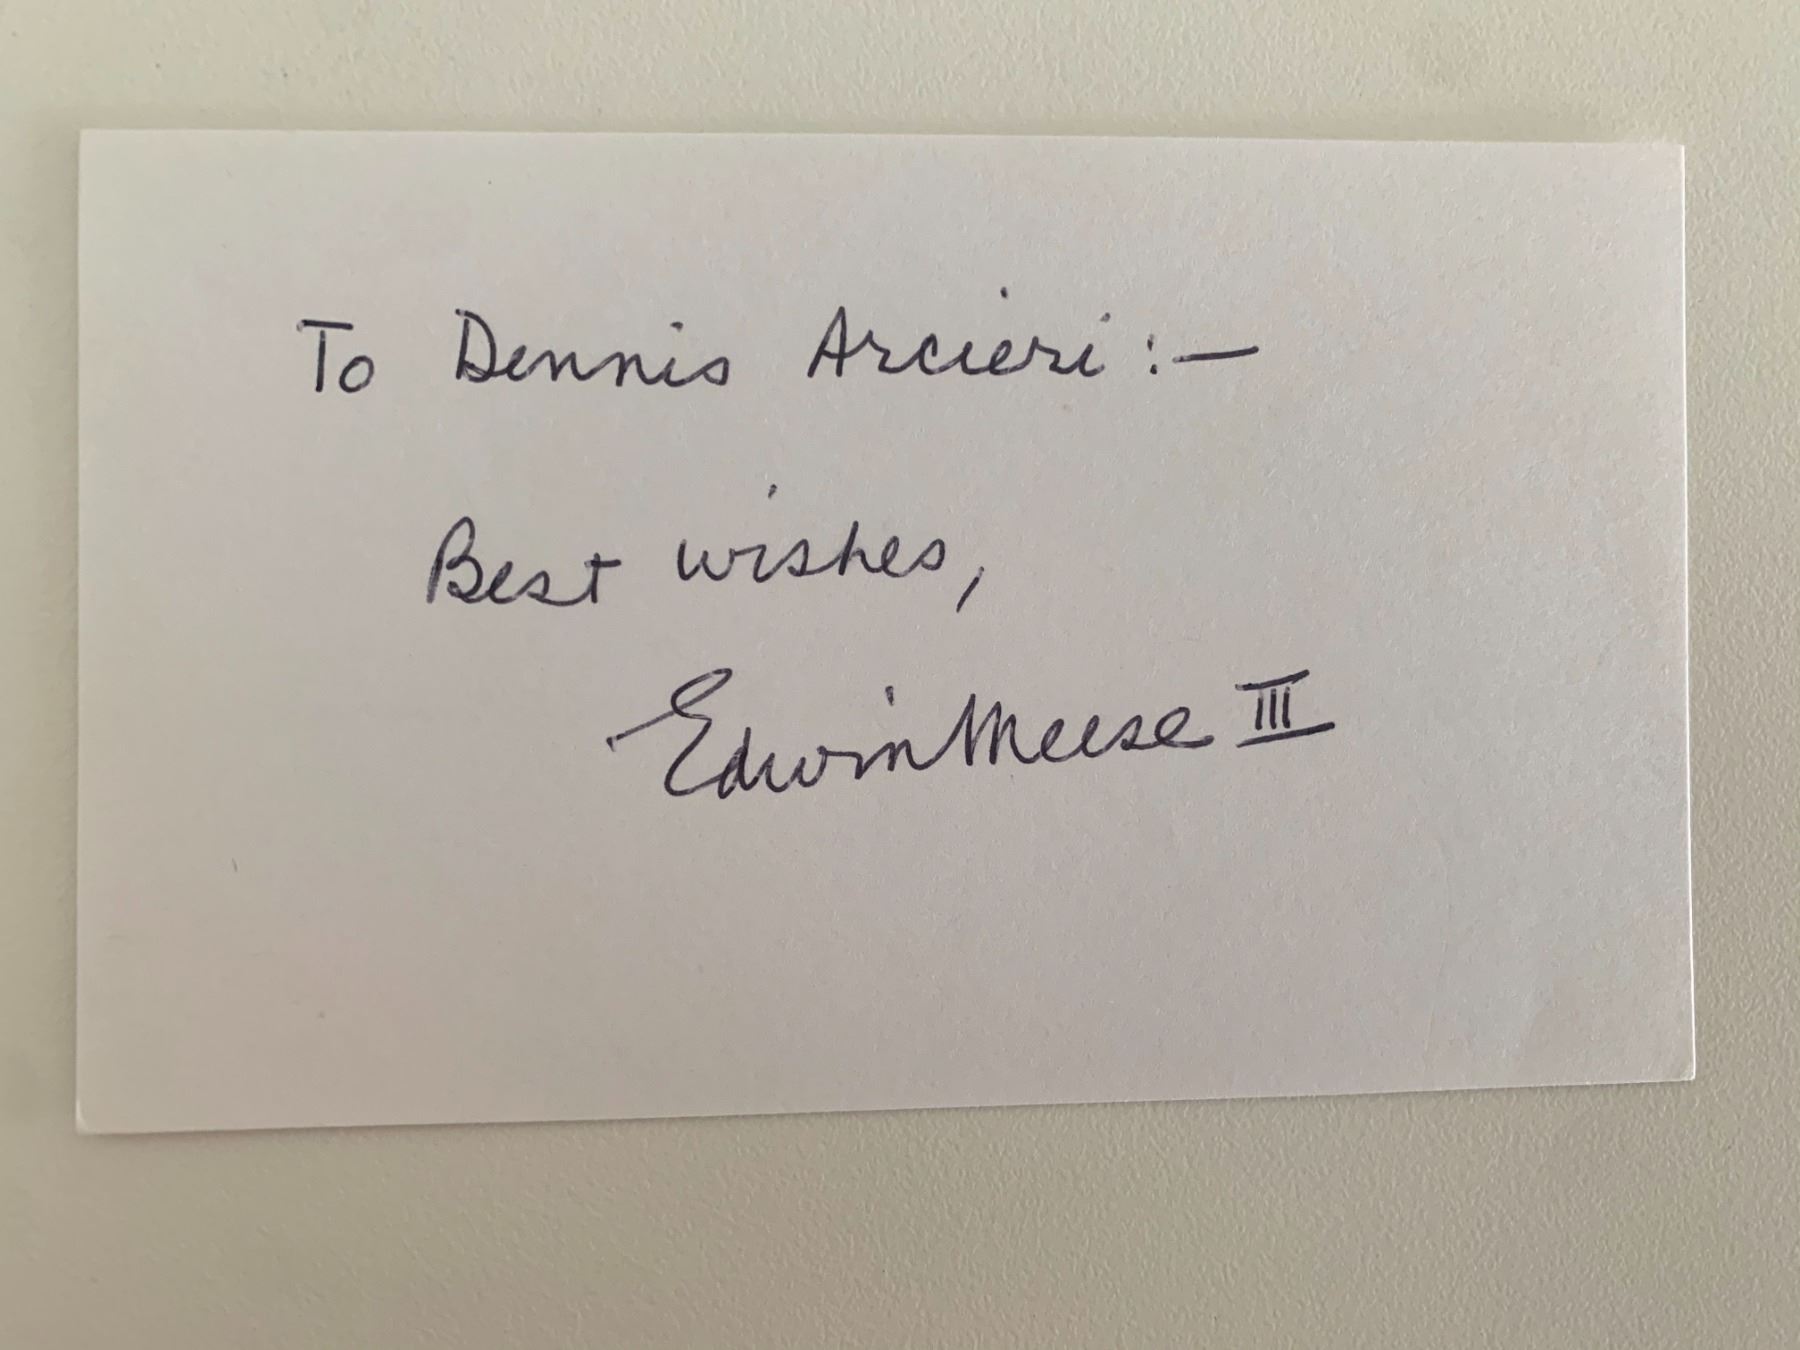 To Dennis Arcieri:—
Best wishes,
Edwin Meese III